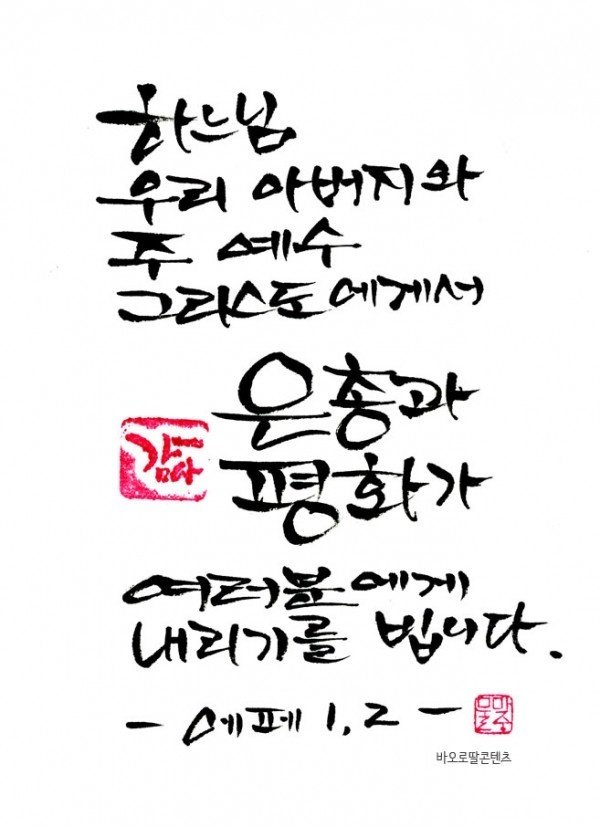 하느님
우리 아버지와
주 예수
그리스도에게서
은총과
감사
평화가
여러분에게
내리기를 빕니다.
- 에페 1,2 -
바오로딸콘텐츠